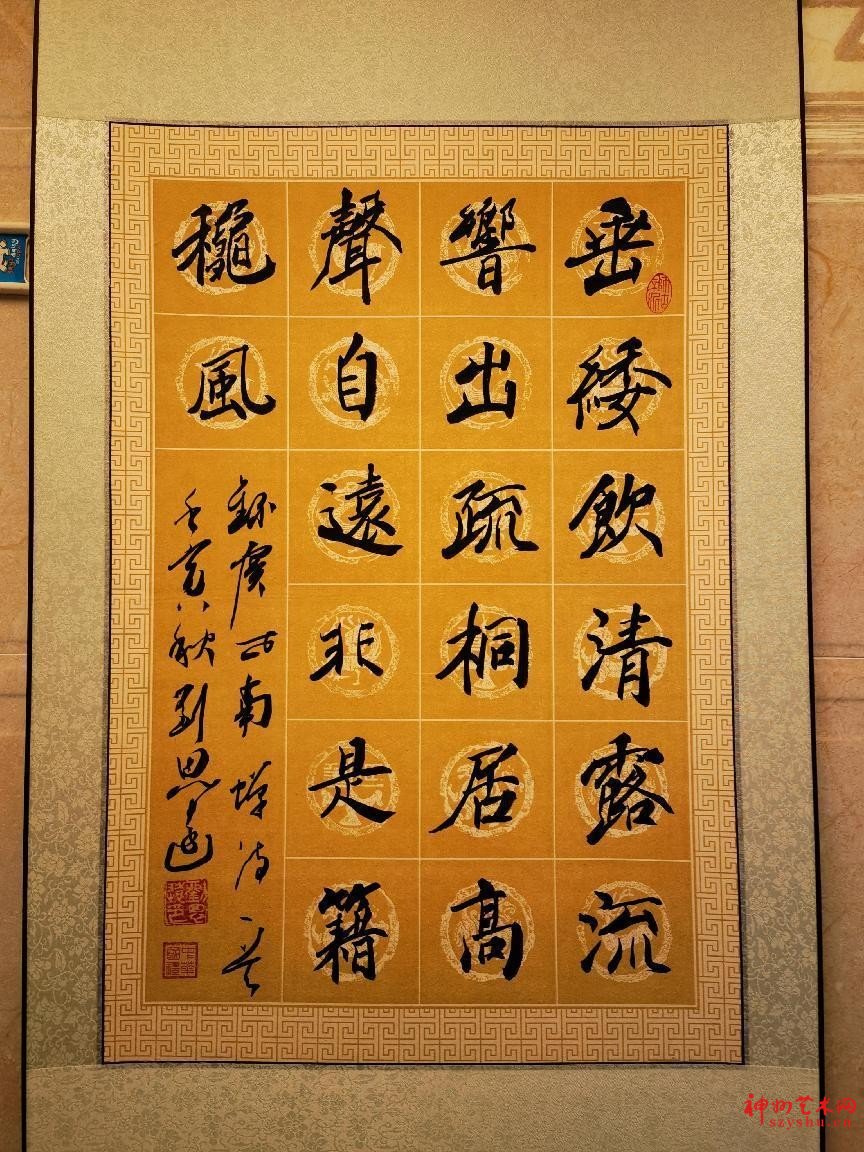 垂緌飲清露流
響出疏桐居高
聲自遠非是籍
穐風
錄虞世南蟬詩一首
壬寅秋劉思遠
神州艺术网
szyshu.cn